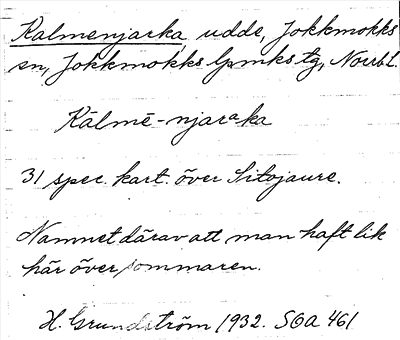 Kalmenjarka udde, Jokkmokks
sn, Jokkmokks lpmks tg, Norrb l.
Kālmē-njaraka
31 spec. kart. över Sitojaure.
Namnet därav att man haft lik
här över sommaren.
H. Grundström 1932. SOA 461